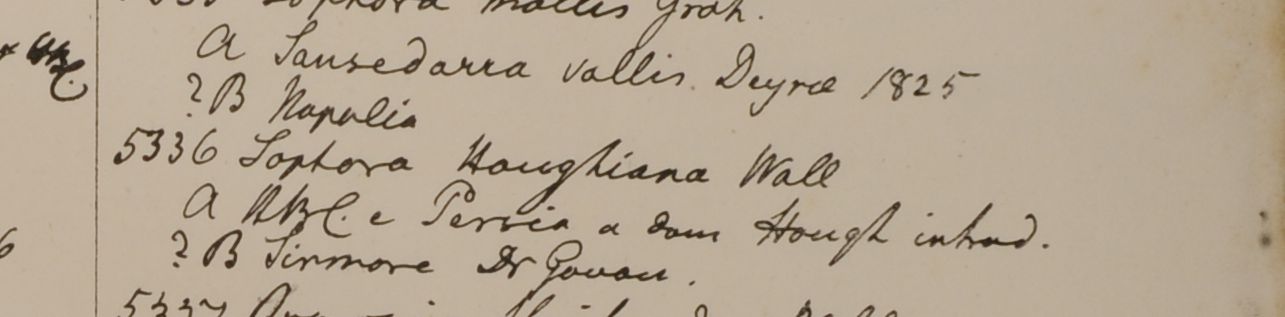 5335 Sophora mollis Grah.
HBC.
A Sansedarra vallis Deyræ 1825
? B Napalia
5336 Sophora Houghiana Wall
A HBC. e Persia a dom Hough introd.
? B Sirmore Dr Govan.
5337